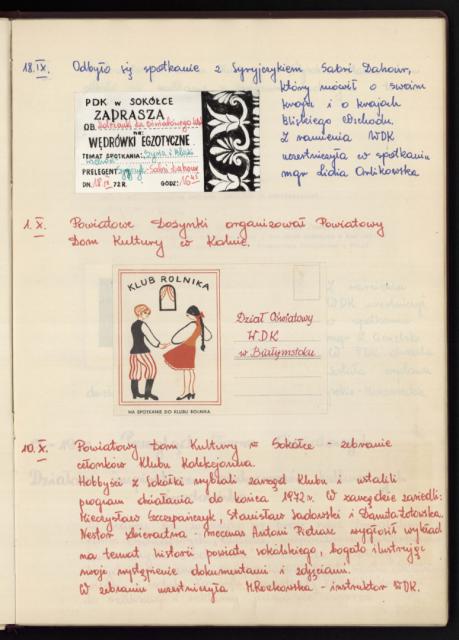 18.IX. Odbyło się spotkanie z Syryjczykiem Sabri Dahour,
który mówił o swoim
kraju i o krajach
Bliskiego Wschodu.
Z ramienia WDK
uczestniczyła w spotkaniu
mgr Lidia Orlikowska
PDK w SOKÓŁCE
ZAPRASZA
OB.
NA:
WĘDRÓWKI EGZOTYCZNE
TEMAT SPOTKANIA: Syria i Bliski
Wschód
PRELEGENT: Syryjcz. Sabri Dahour
DN. 18 IX 72 R. GODZ: 16
1.X. Powiatowe Dożynki organizował Powiatowy
Dom Kultury w Kolnie.
KLUB ROLNIKA
NA SPOTKANIE DO KLUBU ROLNIKA
Dział Oświatowy
WDK
w Białymstoku
10.X. Powiatowy Dom Kultury w Sokółce - zebranie
członków Klubu Kolekcjonera.
Hobbyści z Sokółki wybrali zarząd Klubu i ustalili
program działania do końca 1972 r. W zarządzie zasiedli:
Mieczysław Szczepańczyk, Stanisław Sadowski i Danuta Zotowska.
Nestor zbieractwa - mecenas Antoni Pietrasz wygłosił wykład
na temat historii powiatu sokólskiego, bogato ilustrując
swoje wystąpienie dokumentami i zdjęciami.
W zebraniu uczestniczyła M.Rochowska - instruktor WDK.